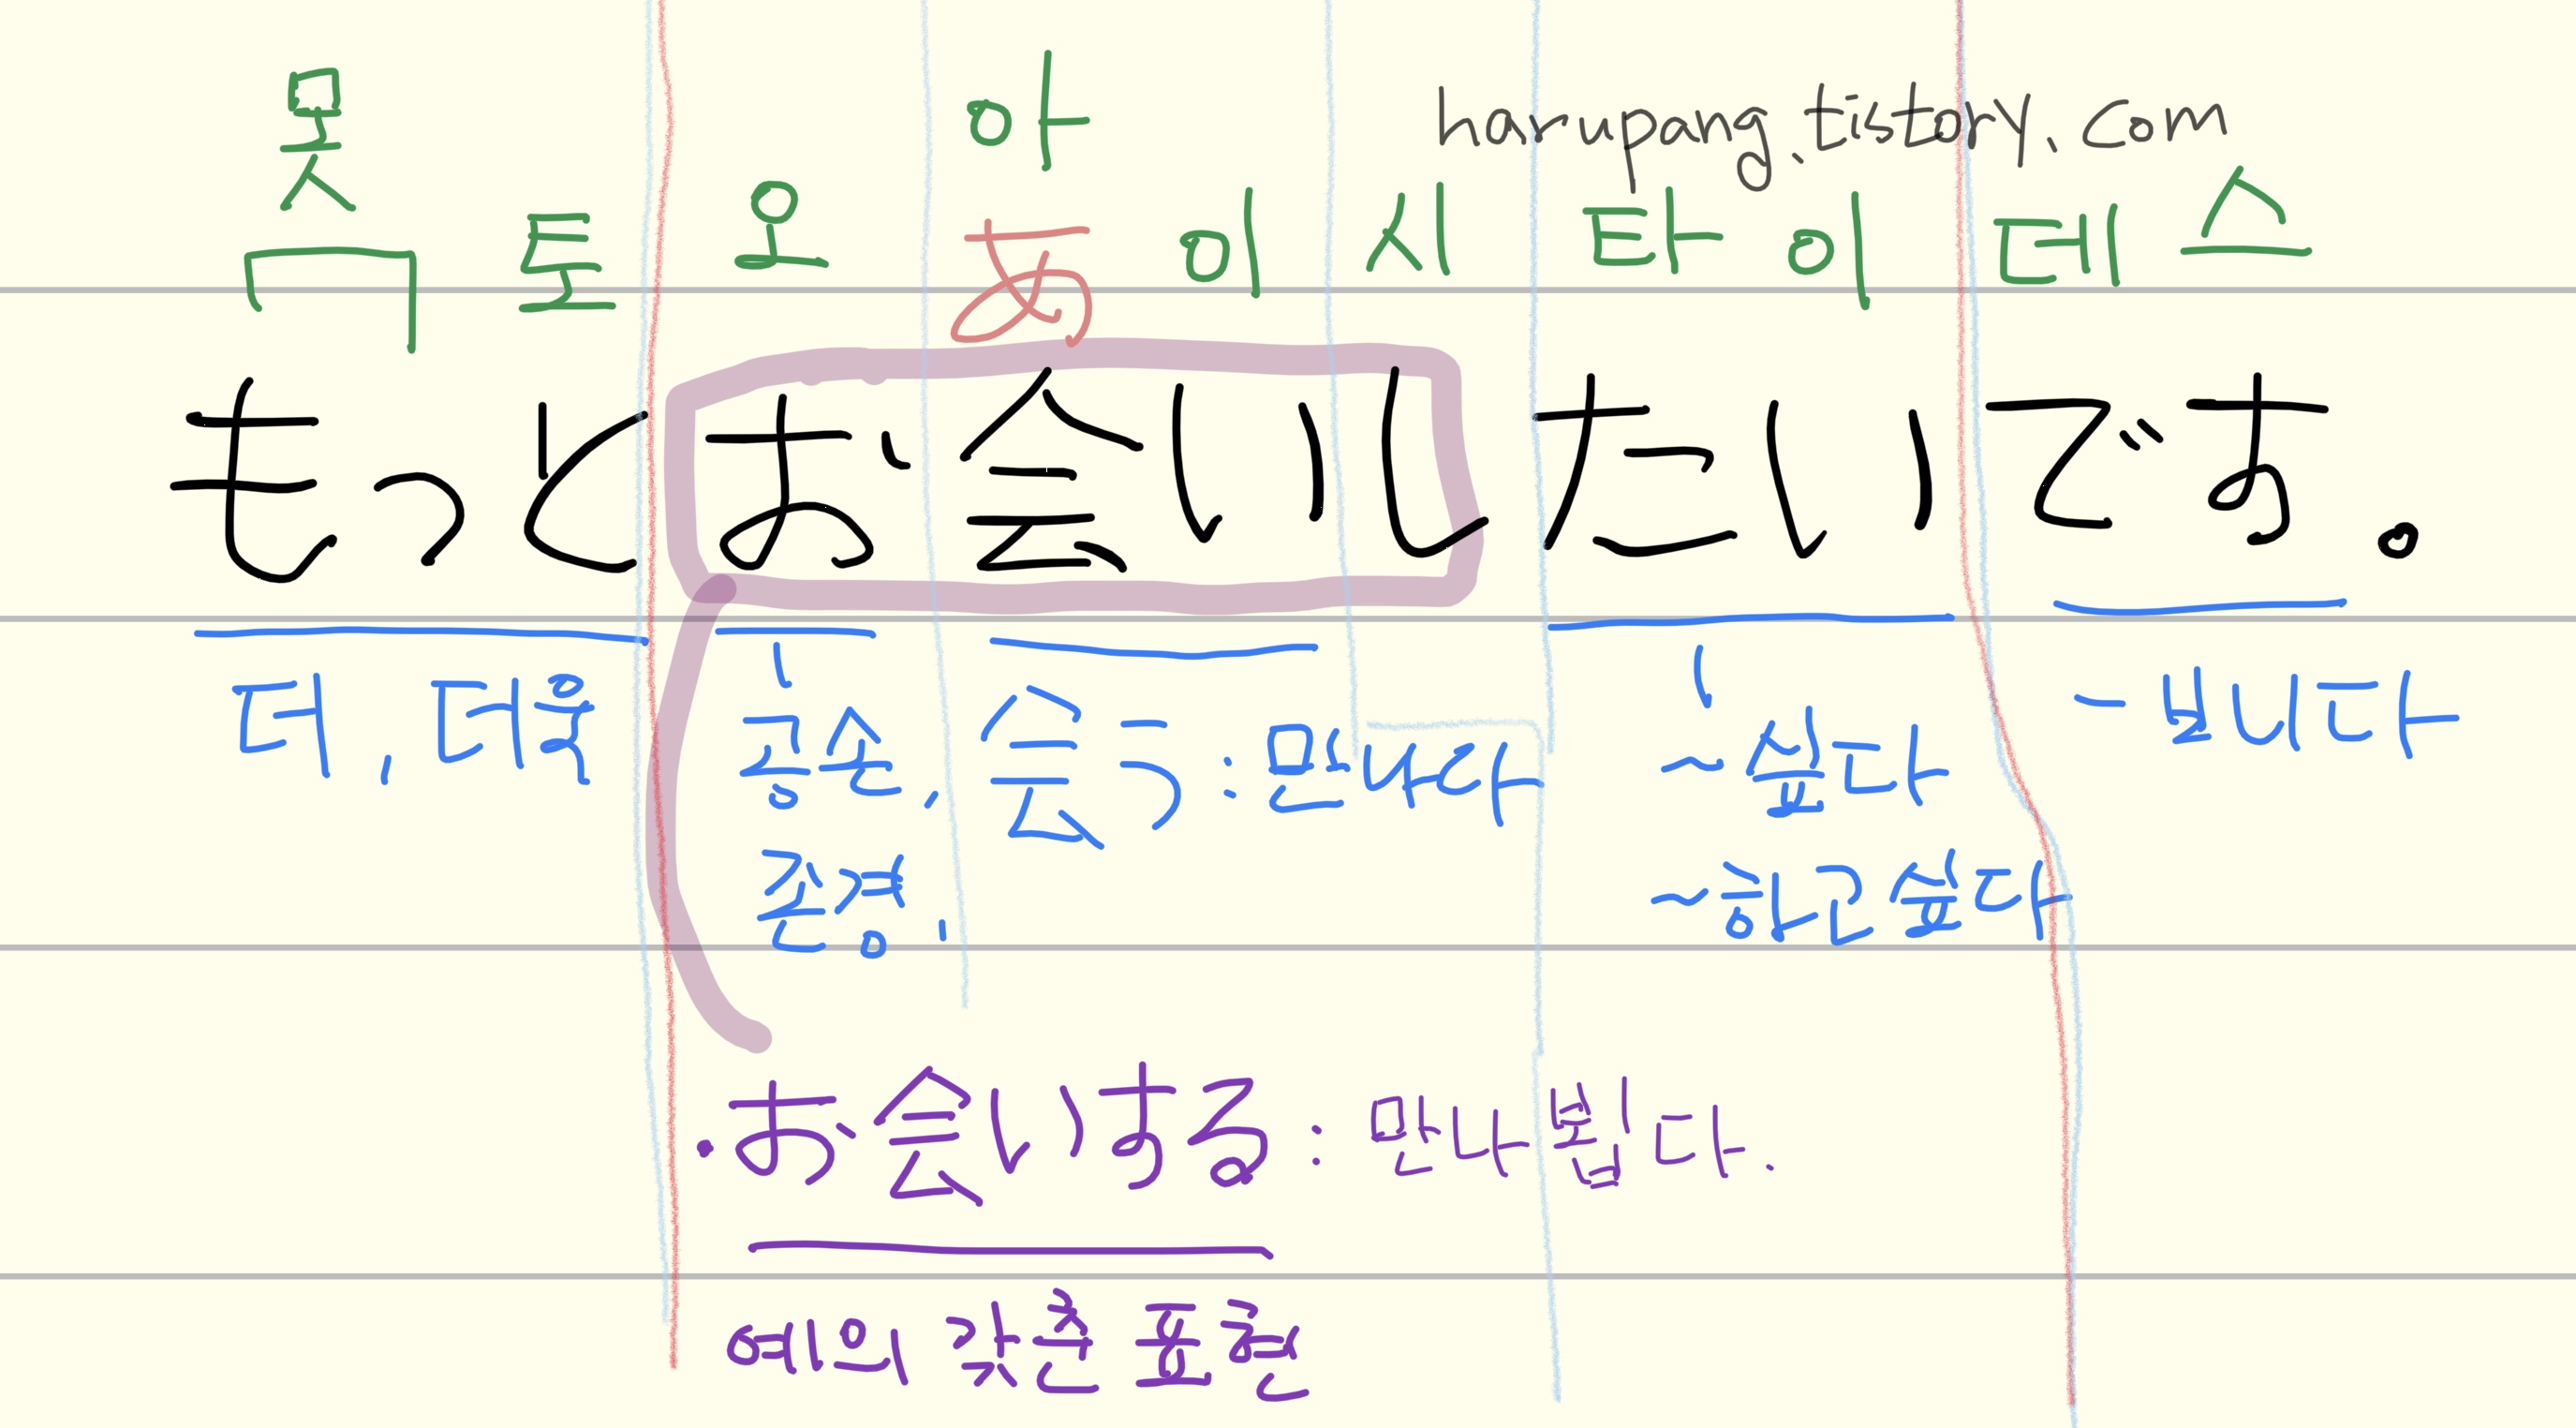 harupang.tistory.com
못 토 오 아 이 시 타 이 데 스
あ
もっとお会いしたいです。
더, 더욱
공손, 존경,
会う: 만나다
~싶다
~하고싶다
-ㅂ니다
·お会いする: 만나 뵙다.
예의 갖춘 표현